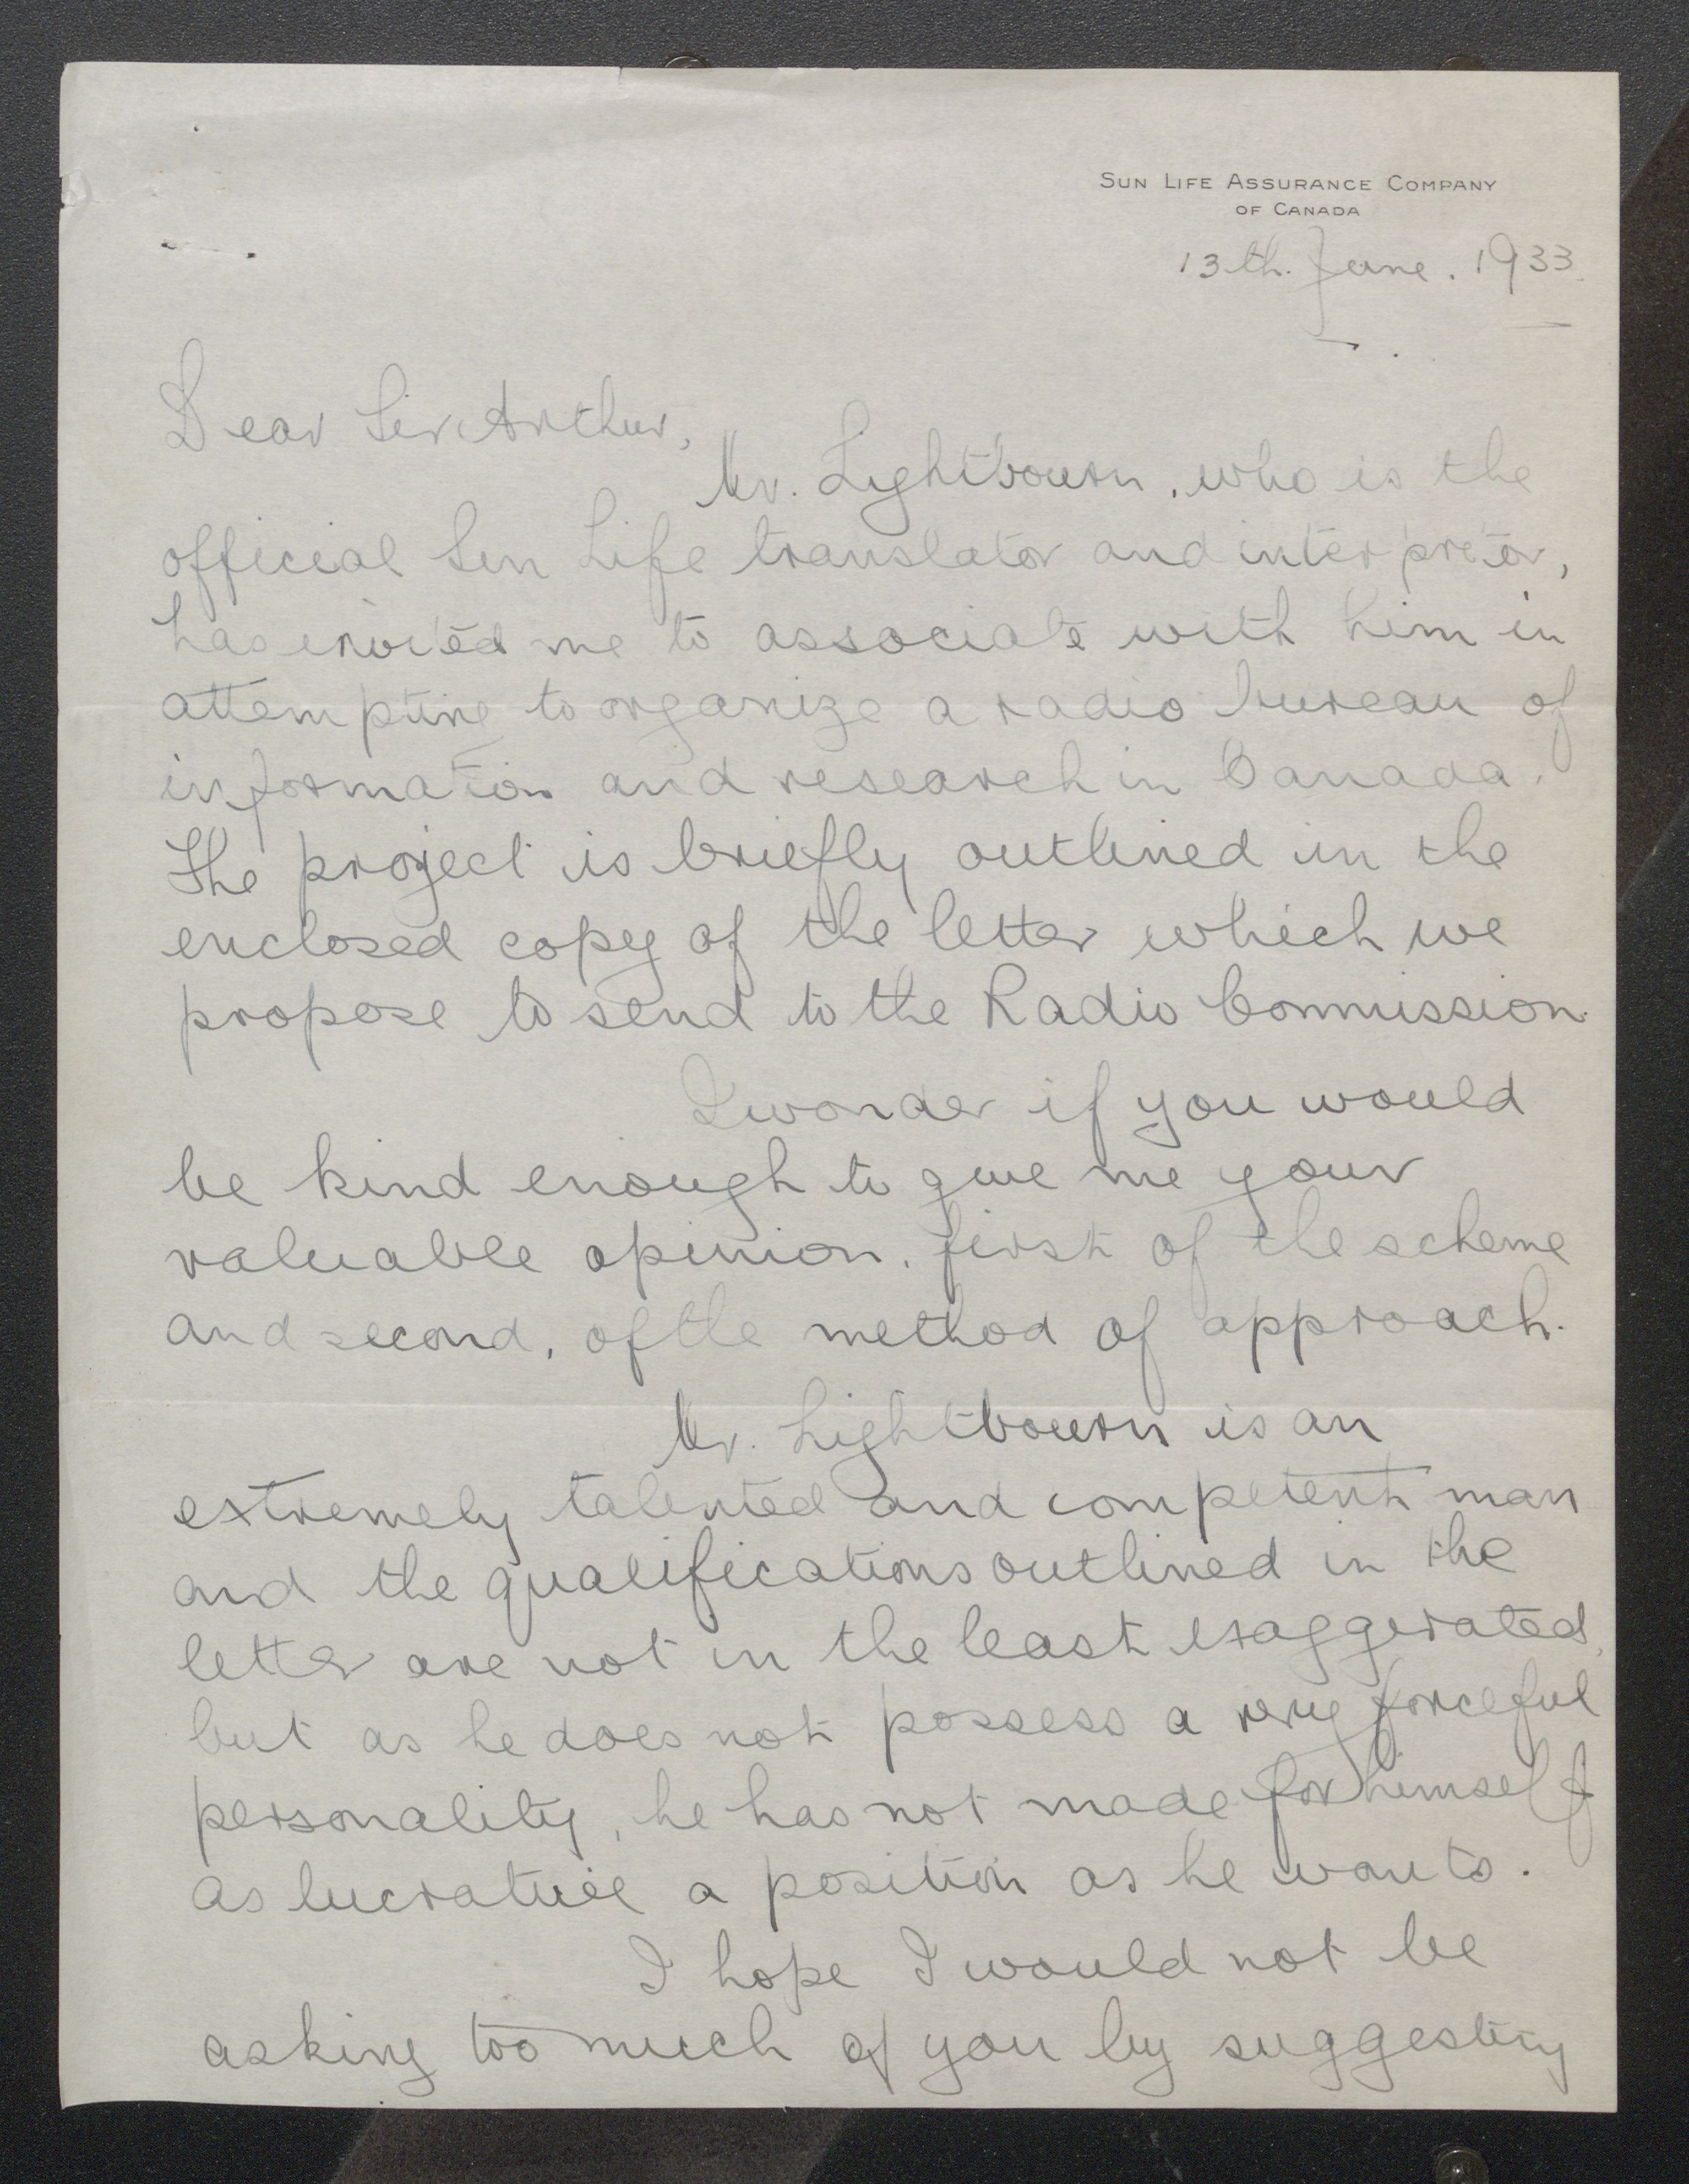 SUN LIFE ASSURANCE COMPANY
OF CANADA
13th. June. 1933.
Dear Sir Arthur,
Mr. Lightbourn, who is the
official Sun Life translator and interpretor,
has invited me to associate with him in
attempting to organize a radio bureau of
information and research in Canada.
The project is briefly outlined in the
enclosed copy of the letter which we
propose to send to the Radio Commission.
I wonder if you would
be kind enough to give me your
valuable opinion, first of the scheme
and second, of the method of approach.
Mr. Lightbourn is an
extremely talented and competent man
and the qualifications outlined in the
letter are not in the least exaggerated,
but as he does not possess a very forceful
personality, he has not made for himself
as lucrative a position as he wants.
I hope I would not be
asking too much of you by suggesting